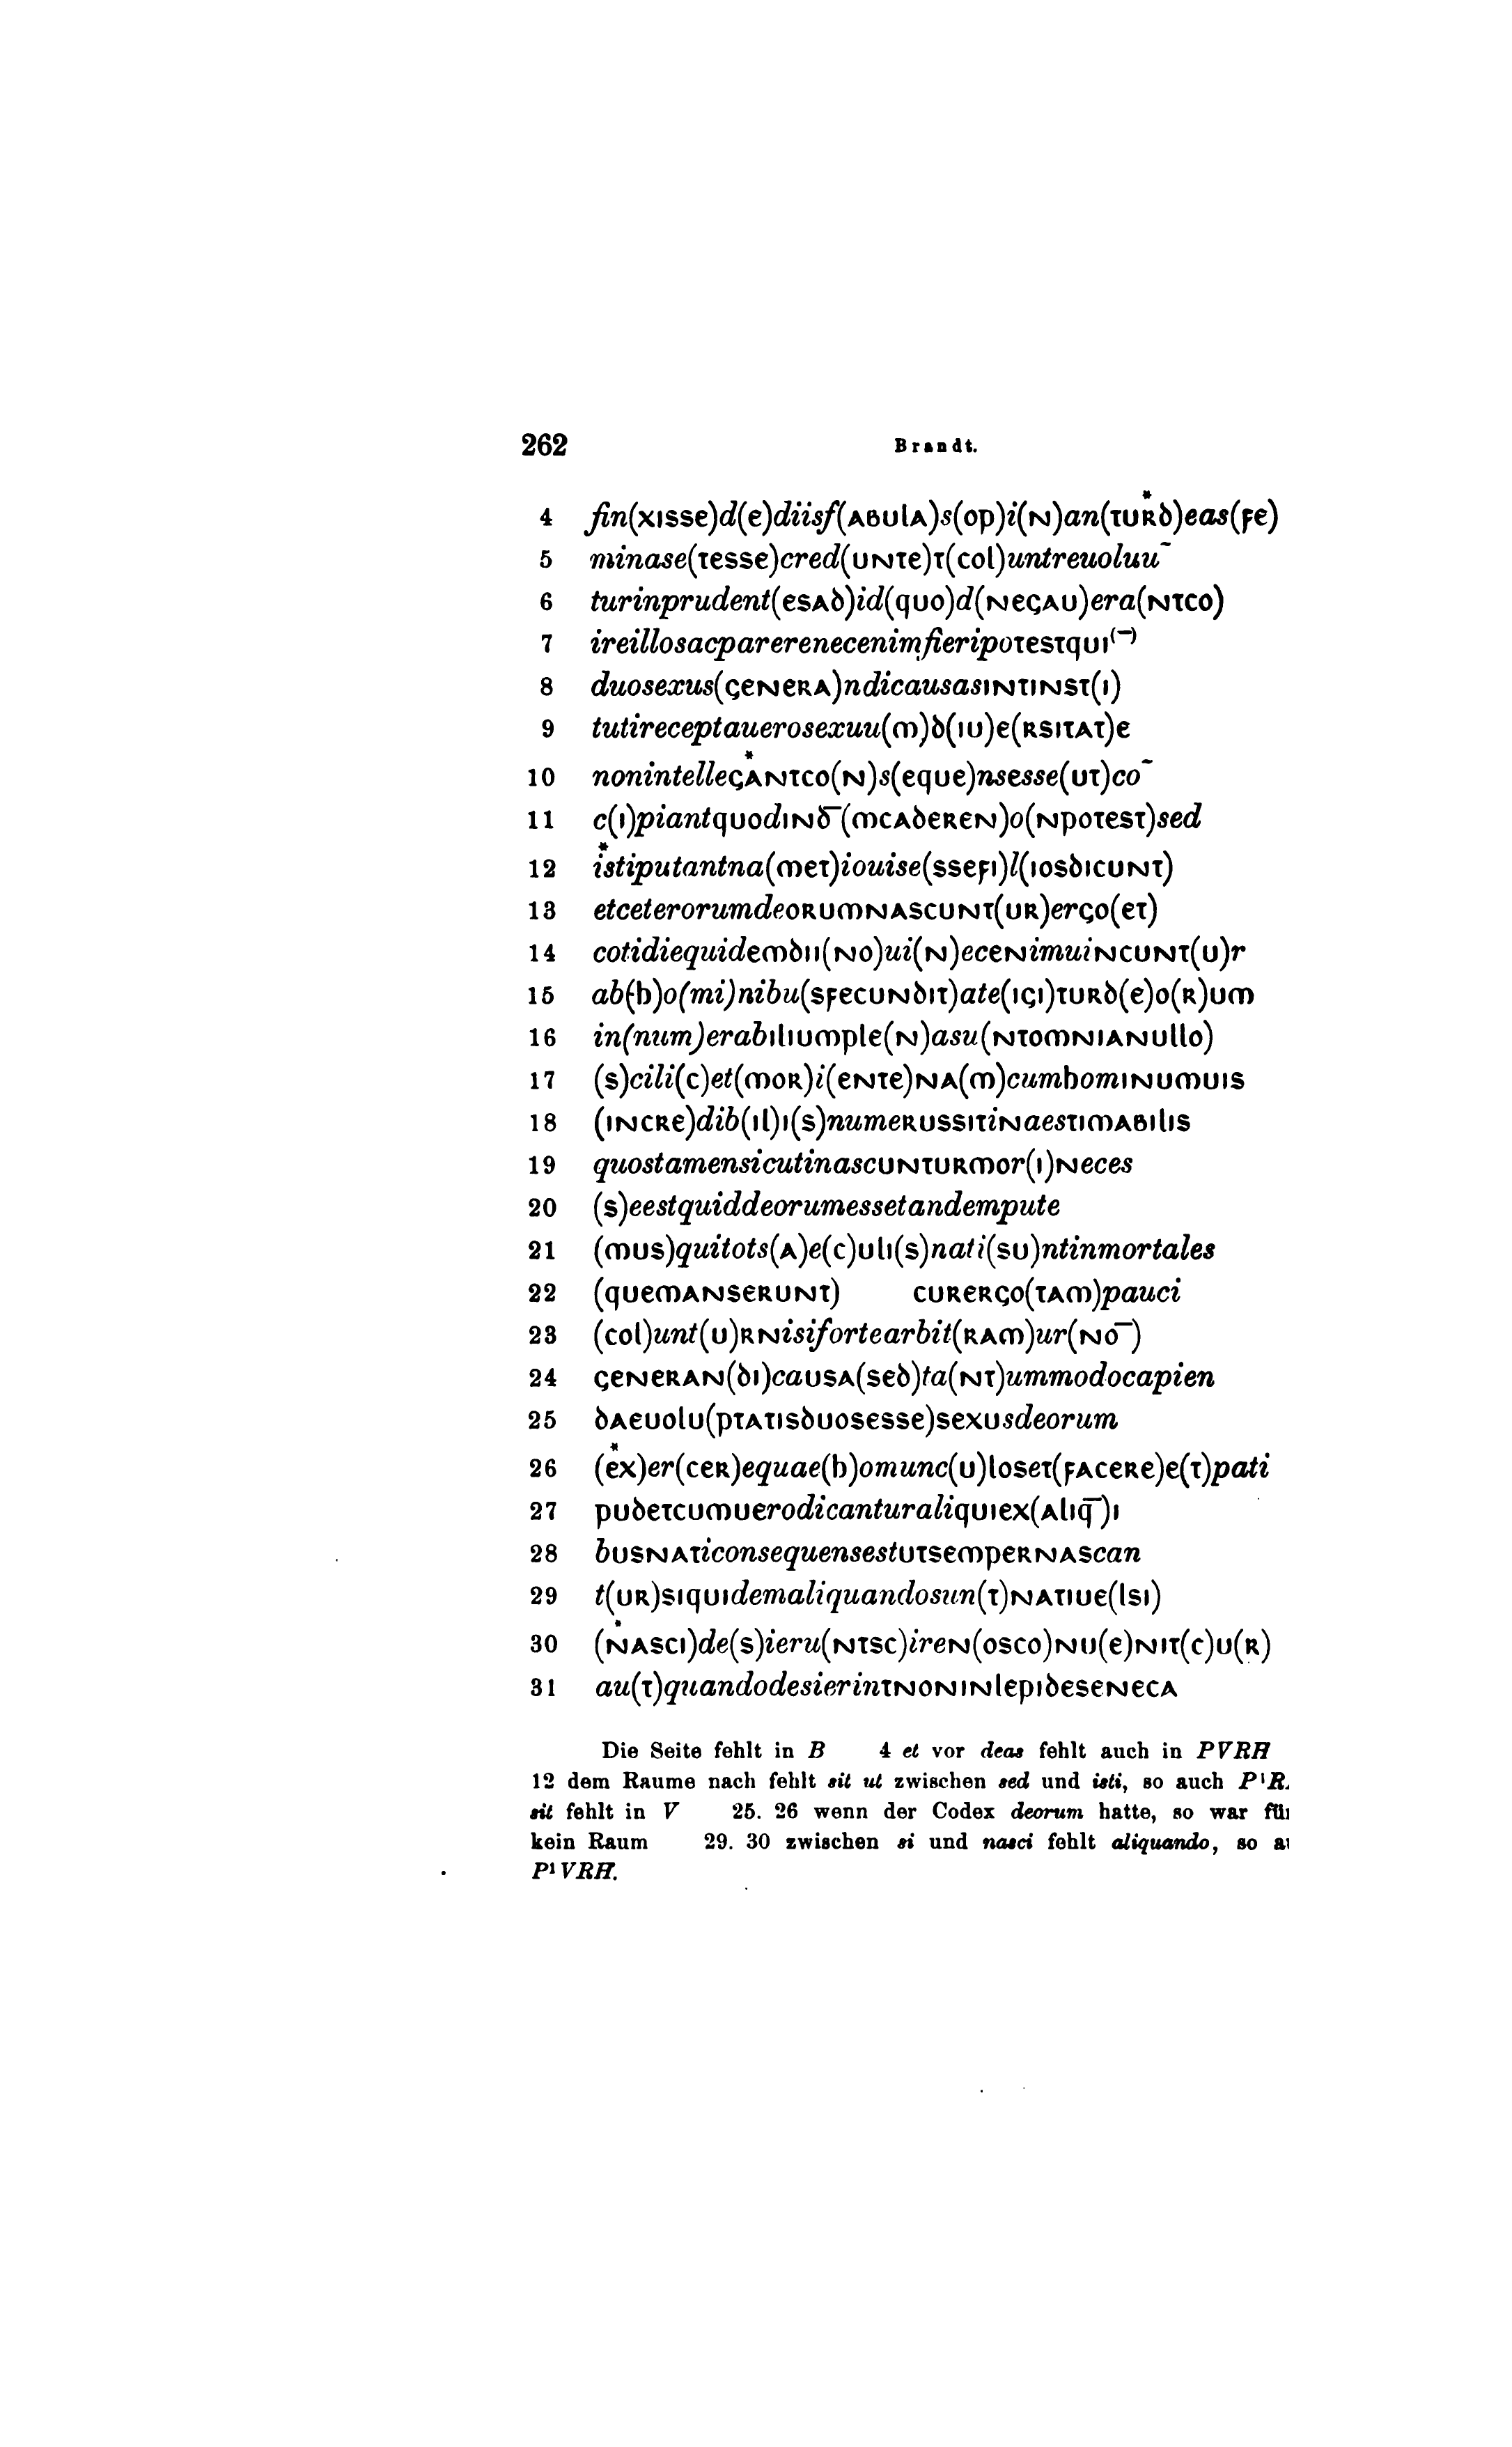 262 Brandt.
4 fin(xisse)d(e)diisf(AbulA)s(op)i(N)an(tuRd)eas(fe)
5 minase(tesse)cred(uNte)t(col)untreuoluu~
6 turinprudent(esAd)id(quo)d(NegAu)era(Ntco)
7 ireillosacparerenecenimfieripotestqui(–)
8 duosexus(geNeRA)ndicausasiNtiNst(i)
9 tutireceptauerosexuu(m)d(iu)e(RsitAt)e
10 nonintellegANtco(N)s(eque)nsesse(ut)co~
11 c(i)piantquodiNd–(mcAdeReN)o(Npotest)sed
12 istiputantna(met)iouise(ssefi)l(iosdicuNt)
13 etceterorumdeoRumNAscuNt(uR)ergo(et)
14 cotidiequidemdii(No)ui(N)eceNimuiNcuNt(u)r
15 ab(h)o(mi)nibu(sfecuNdit)ate(igi)tuRd(e)o(R)um
16 in(num)erabiliumple(N)asu(NtomNiANullo)
17 (s)cili(c)et(moR)i(eNte)NA(m)cumhomiNumuis
18 (iNcRe)dib(il)i(s)numeRussitiNaestimAbilis
19 quostamensicutinascuNtuRmor(i)Neces
20 (s)eestquiddeorumessetandempute
21 (mus)quitots(A)e(c)uli(s)nati(su)ntinmortales
22 (quemANseRuNt) cuReRgo(tAm)pauci
23 (col)unt(u)RNisifortearbit(RAm)ur(No–)
24 geNeRAN(di)causA(sed)ta(Nt)ummodocapien
25 dAeuolu(ptAtisduosesse)sexusdeorum
26 (ex)er(ceR)equae(h)omunc(u)loset(fAceRe)e(t)pati
27 pudetcumuerodicanturaliquiex(Aliq̅)i
28 busNAticonsequensestutsempeRNAscan
29 t(uR)siquidemaliquandosun(t)NAtiue(lsi)
30 (NAsci)de(s)ieru(Ntsc)ireN(osco)Nu(e)Nit(c)u(R)
31 au(t)quandodesierintNoNiNlepideseNecA
Die Seite fehlt in B 4 et vor deas fehlt auch in PVRH
12 dem Raume nach fehlt sit ut zwischen sed und isti, so auch P¹R.
sit fehlt in V 25. 26 wenn der Codex deorum hatte, so war fü
kein Raum 29. 30 zwischen si und nasci fehlt aliquando, so a
P¹VRH.